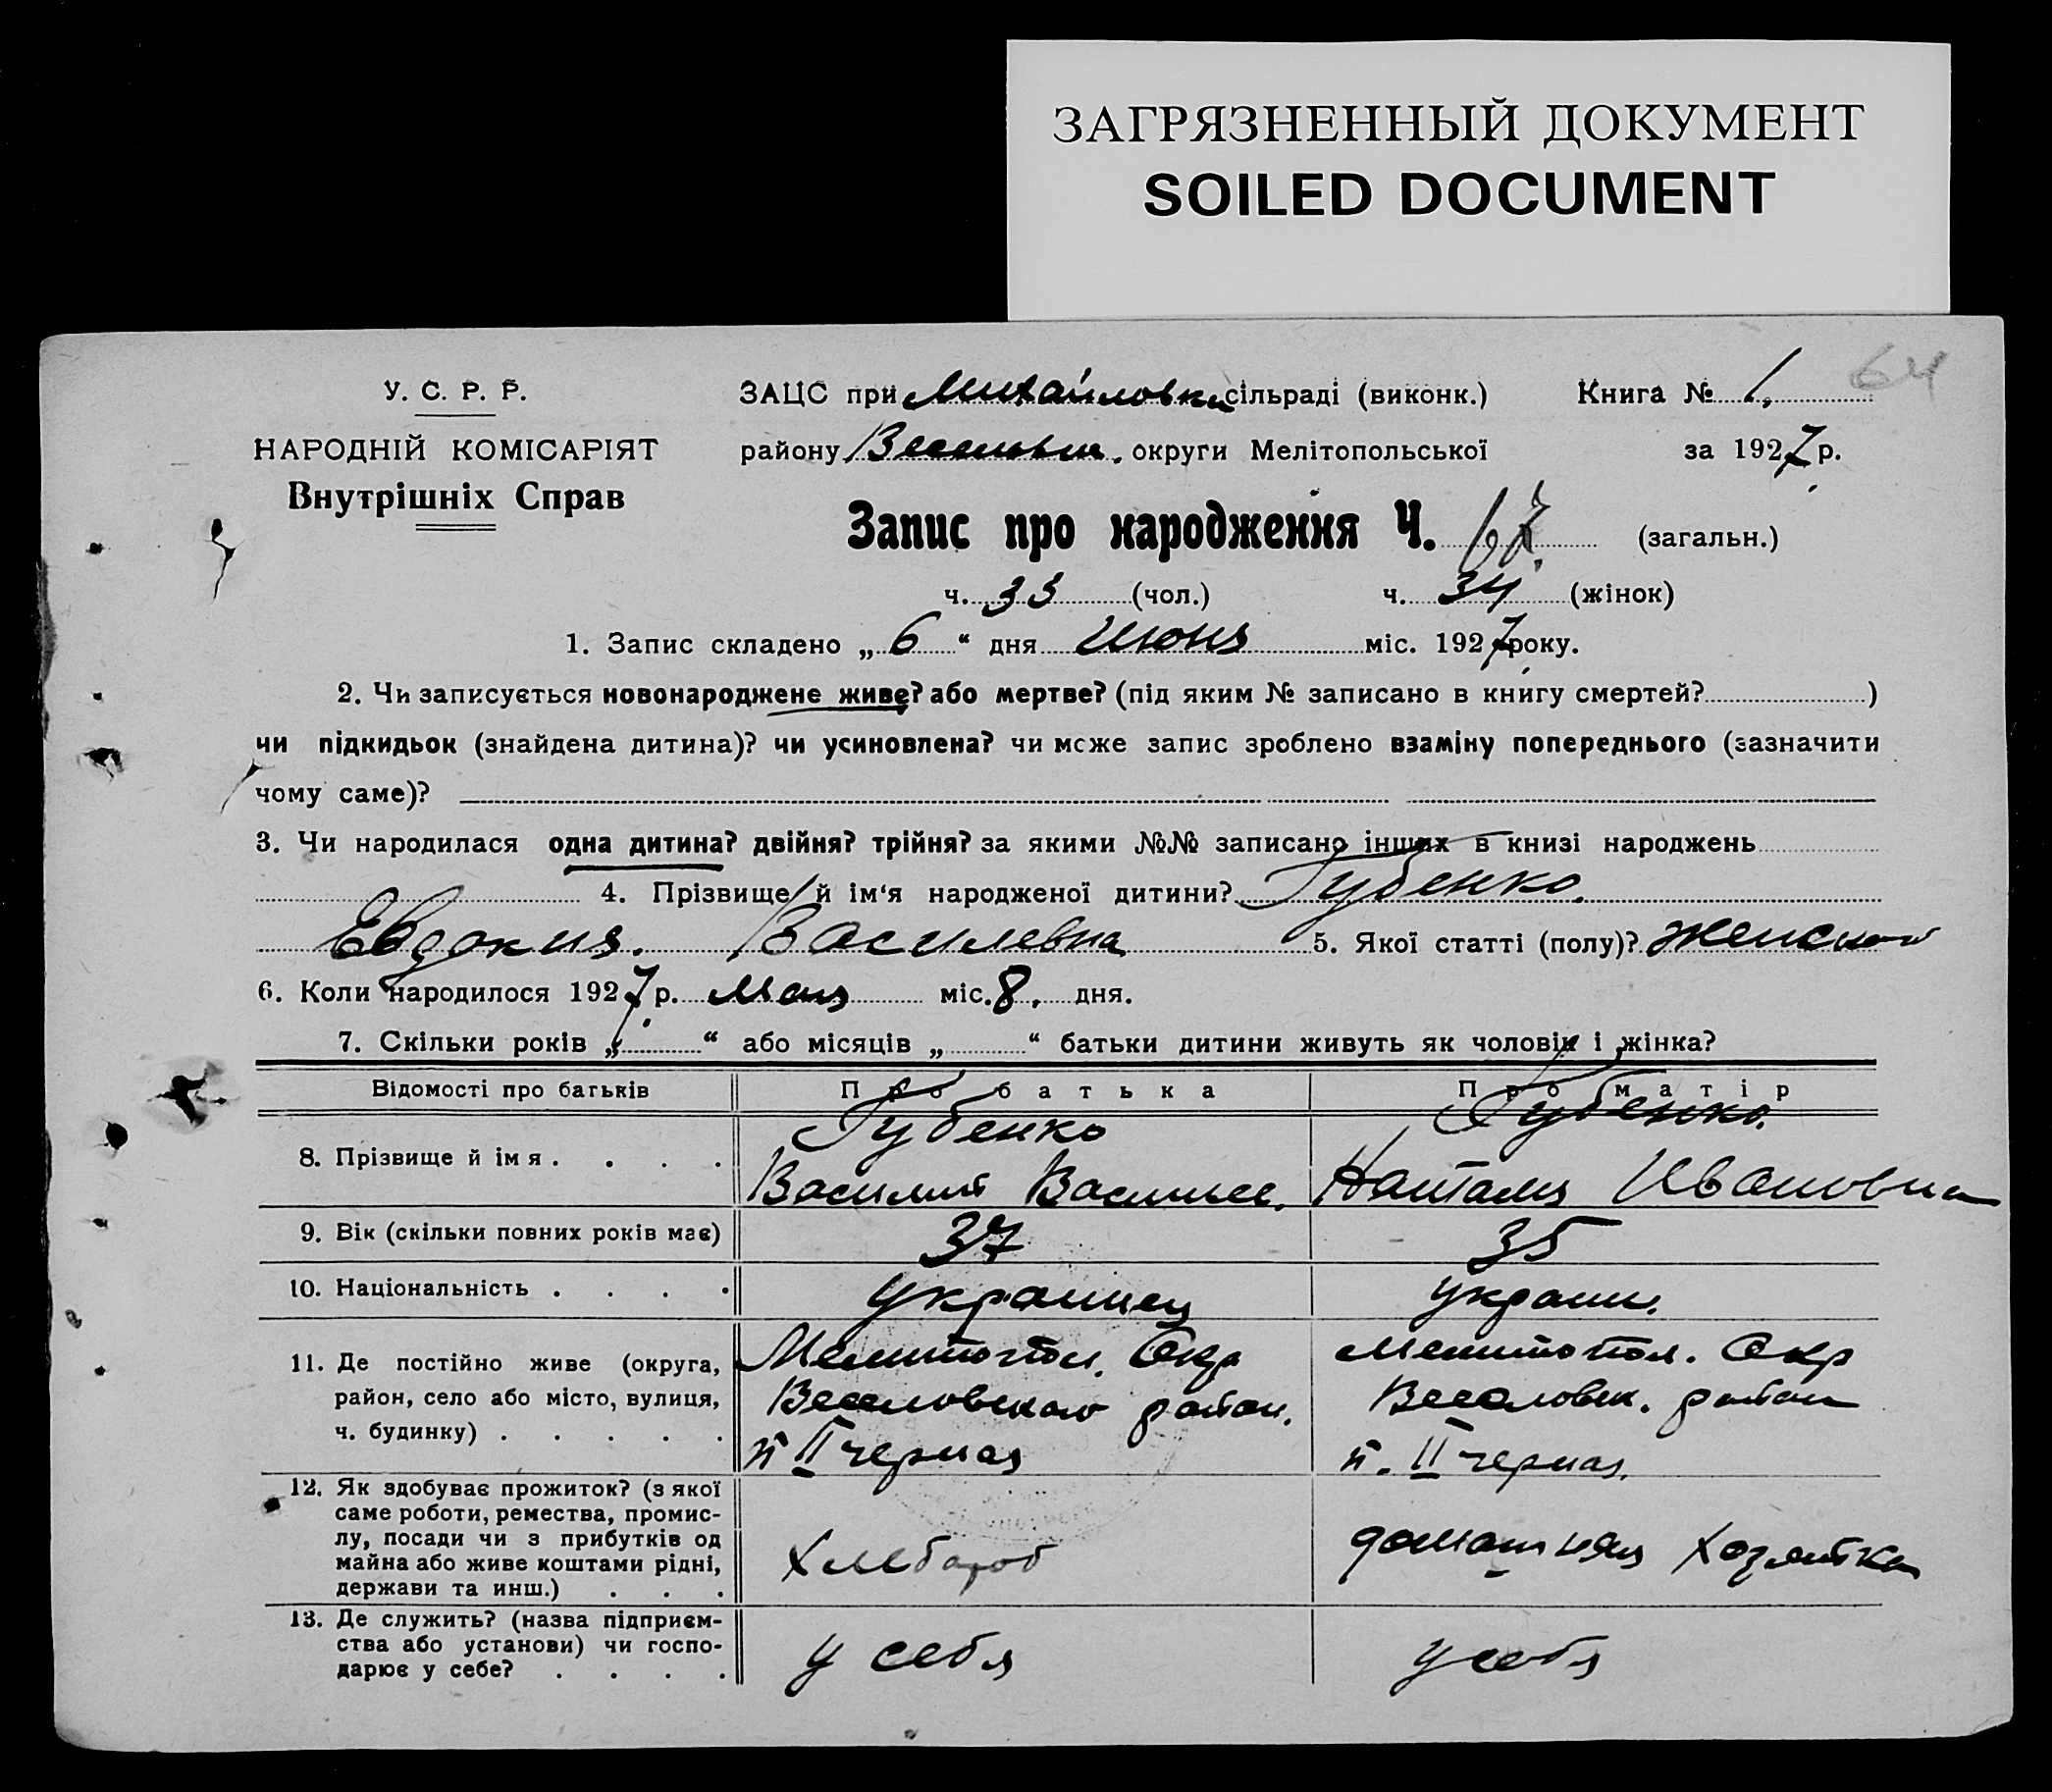 ЗАГРЯЗНЕННЫЙ ДОКУМЕНТ
SOILED DOCUMENT
64
У. С. Р. Р.
НАРОДНІЙ КОМІСАРІЯТ
Внутрішніх Справ
ЗАЦС при Михайловки сільраді (виконк.) Книга № 1.
району округи Мелітопольської за 1927 р.
Запис про народження Ч. 67. (загальн.)
ч. 33 (чол.) ч. 34 (жінок)
1. Запис складено „ 6 “ дня Июня міс. 1927 року.
2. Чи записується новонароджене живе? або мертве? (під яким № записано в книгу смертей? )
чи підкидьок (знайдена дитина)? чи усиновлена? чи може запис зроблено взаміну попереднього (зазначити
чому саме)?
3. Чи народилася одна дитина? двійня? трійня? за якими №№ записано інших в книзі народжень
4. Прізвище й ім‘я народженої дитини? Губенко.
Евдокия. Василевна 5. Якої статті (полу)? женской
6. Коли народилося 1927 р. Мая міс. 8. дня.
7. Скільки років „ “ або місяців „ “ батьки дитини живуть як чоловік і жінка?
Відомості про батьків Про батька Про матір
8. Прізвище й імя . . . . Губенко Губенко.
Василий Васильев. Наталия Ивановна
9. Вік (скільки повних років має) 37 35
10. Національність . . . . украинец украин.
11. Де постійно живе (округа, район, село або місто, вулиця, ч. будинку) . . . . .
Мелитопол. Окр Мелитопол. Окр
Веселовского район. Веселовск. район
п II черная п. II черная.
12. Як здобуває прожиток? (з якої саме роботи, ремества, промислу, посади чи з прибутків од майна або живе коштами рідні, держави та инш.) . . .
Хлебароб домашняя хозяйка
13. Де служить? (назва підприємства або установи) чи господарює у себе? . . . .
у себя у себя